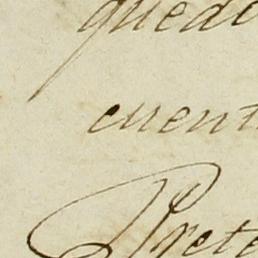 quedo
cuent
Prete